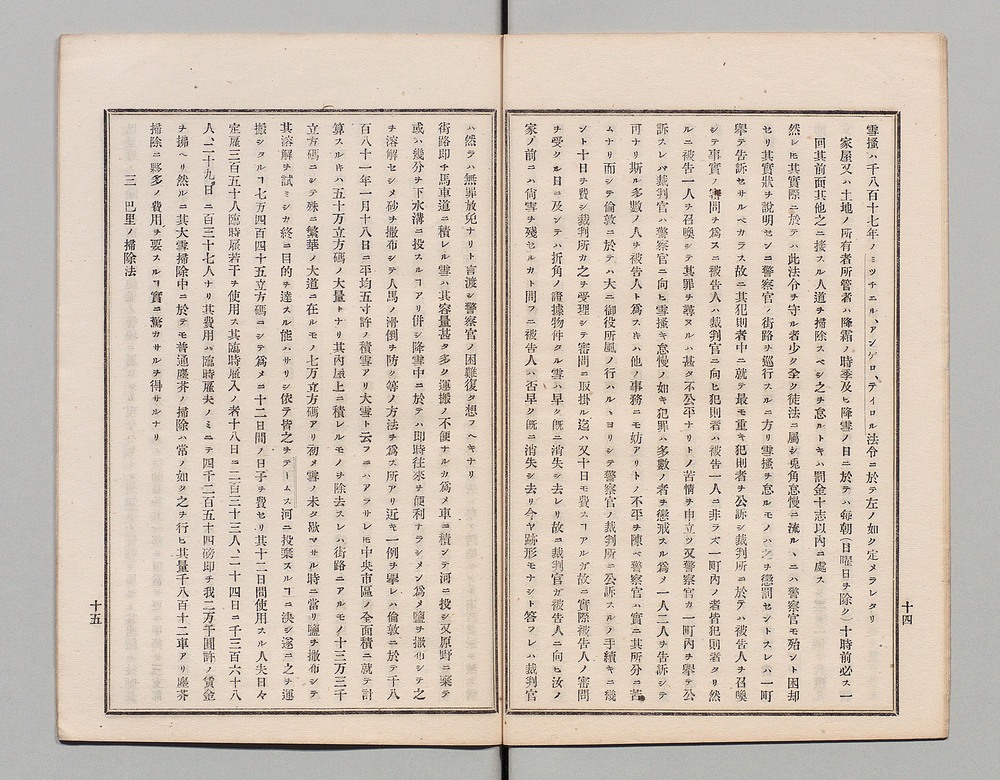 雪搔ハ千八百十七年ノミツチエル、アンゲロ、テイロル法令ニ於テ左ノ如ク定メラレタリ
家屋又ハ土地ノ所有者所管者ハ降霜ノ時季及ヒ降雪ノ日ニ於テハ每朝(日曜日ヲ除ク)十時前必ス一
回其前面其他之ニ接スル人道ヲ掃除スベシ之ヲ怠ルトキハ罰金十志以內ニ處ス
然レ𪜈其實際ニ於テハ此法令ヲ守ル者少ク全ク徒法ニ屬シ兎角怠慢ニ流ルヽニハ警察官モ殆ント困却
セリ其實狀ヲ說明センニ警察官ノ街路ヲ巡行スルニ方リ雪搔ヲ怠ルモノハ之ヲ懲罰セントスレハ一町
擧テ告訴セサルベカラス故ニ其犯則者中ニ就テ最モ重キ犯則者ヲ公訴シ裁判所ニ於テハ被告人ヲ召喚
シテ事實ノ審問ヲ爲スニ被告人ハ裁判官ニ向ヒ犯則者ハ被告一人ニ非ラズ一町內ノ者皆犯則者タリ然
ルニ被告一人ヲ召喚シテ其罪ヲ尋ヌルハ甚タ不公平ナリトノ苦情ヲ申立ツ又警察官カ一町內ヲ擧テ公
訴スレハ裁判官ハ警察官ニ向ヒ雪搔キ怠慢ノ如キ犯罪ハ多數ノ者ヲ懲戒スル爲メ一人二人ヲ告訴シテ
可ナリ斯ル多數ノ人ヲ被告人ト爲スキハ他ノ事務ニモ妨アリトノ不平ヲ陳ベ警察官ハ實ニ其所分ニ苦
ムナリ而シテ倫敦ニ於テハ大ニ御役所風ノ行ハルヽヨリシテ警察官ノ裁判所ニ公訴スルノ手續キニ幾
ント十日ヲ費シ裁判所カ之ヲ受理シテ審問ニ取掛ル迄ハ又十日モ費スヿアルガ故ニ實際被告人ノ審問
ヲ受クル日ニ及ンテハ折角ノ證據物件タルノ雪ハ早ク旣ニ消失シ去レリ故ニ裁判官ガ被告人ニ向ヒ汝ノ
家ノ前ニハ尙雪ヲ殘セルカト問フニ被告人ハ否早ク旣ニ消失シ去リ今ヤ跡形モナシト答フレハ裁判官
十四
ハ然ラハ無罪放免ナリト言渡シ警察官ノ困難復タ想フヘキナリ
街路即チ馬車道ニ積レル雪ハ其容量甚タ多ク運搬ノ不便ナルカ爲メ車ニ積ンテ河ニ投シ又原野ニ棄テ
或ハ幾分ヲ下水溝ニ投スルヿアリ併シ降雪中ニ於テハ即時往來ヲ便利ナラシメンガ爲メ鹽ヲ撒布シテ之
ヲ溶解セシメ砂ヲ撒布シテ人馬ノ滑倒ヲ防ク等ノ方法ヲ爲ス所アリ近キ一例ヲ擧レハ倫敦ニ於テ千八
百八十一年一月十八日ニ平均五寸許ノ積雪アリ大雪ト云フニハアラサレ𪜈中央市區ノ全面積ニ就テ計
算スルキハ五十万立方碼ノ大量トナリ其內屋上ニ積レルモノヲ除去スレハ街路ニアルモノ十三万三千
立方碼ニシテ殊ニ繁華ノ大道ニ在ルモノ七万立方碼アリ初メ雪ノ未タ歇マサル時ニ當リ鹽ヲ撒布シテ
其溶解ヲ試ミシカ終ニ目的ヲ達スル能ハサリシ依テ皆之ヲテームス河ニ投棄スルヿニ決シ遂ニ之ヲ運
搬シタルヿ七万四百四十五立方碼ニシテ爲メニ十二日間ノ日子ヲ費セリ其十二日間使用スル人夫日々
定雇三百五十人臨時雇若干ヲ使用ス其臨時雇入ノ者十八日ニ二百三十三人、二十四日ニ千三百六十八
人、二十九日ニ二百三十七人ナリ其費用ハ臨時雇夫ノミニテ四千二百五十四磅即チ我二万千圓許ノ賃金
ヲ拂ヘリ然ルニ其大雪掃除中ニ於テモ普通塵芥ノ掃除ハ常ノ如ク之ヲ行ヒ其量千八百十二車アリ塵芥
掃除ニ夥多ノ費用ヲ要スルヿ實ニ驚カサルヲ得サルナリ
三 巴里ノ掃除法
十五